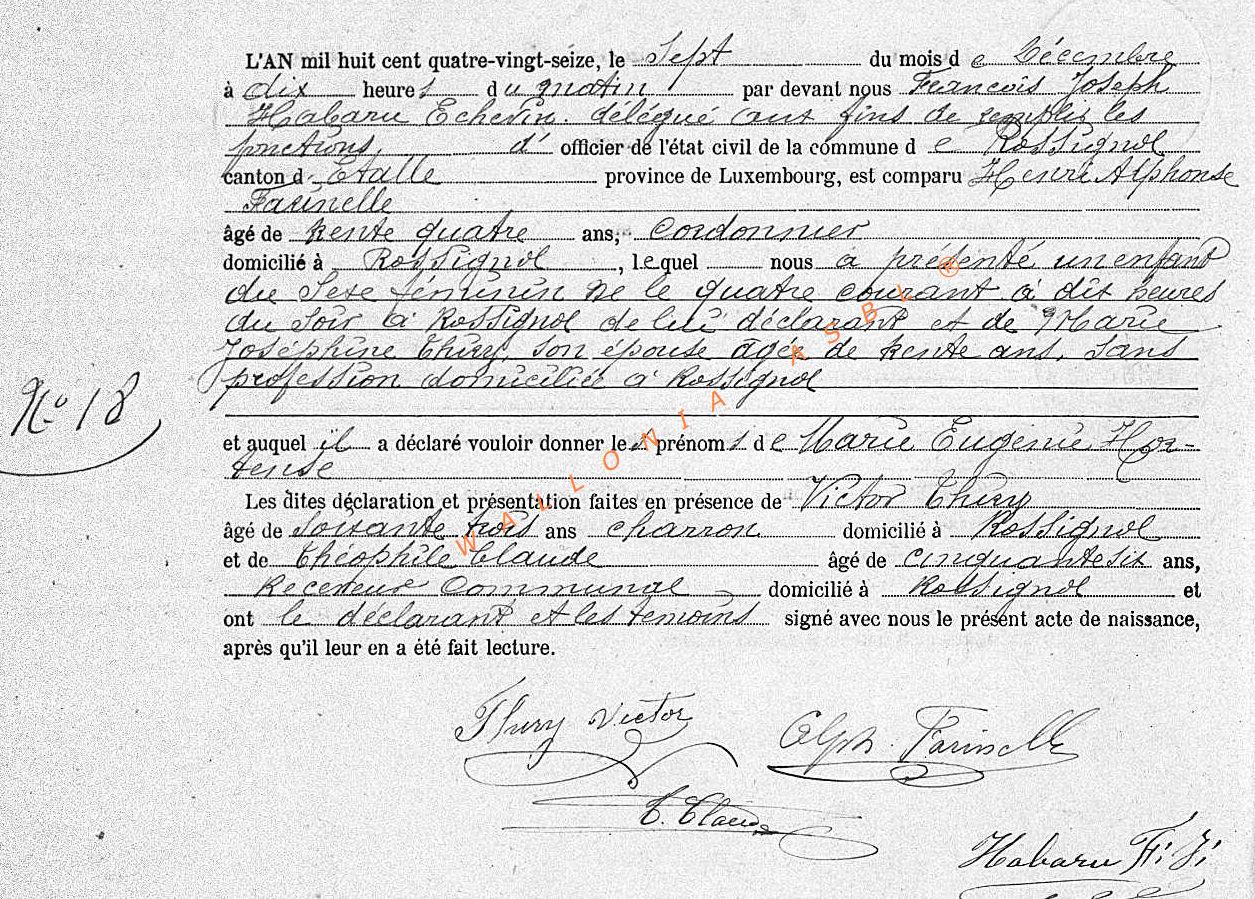 L'AN mil huit cent quatre-vingt-seize, le Sept du mois de Décembre
à dix heures du matin par devant nous François Joseph
Habaru Echevin délégué aux fins de remplir les
fonctions, d' officier de l'état civil de la commune de Rossignol
canton d'Etalle province de Luxembourg, est comparu Henri Alphonse
Farinelle
âgé de trente quatre ans, cordonnier
domicilié à Rossignol, lequel nous a présenté un enfant
du Sexe féminin né le quatre courant à dix heures
du soir à Rossignol de lui déclarant et de Marie
Joséphine Thiry, son épouse agée de trente ans, sans
profession domiciliée à Rossignol
N° 18
et auquel il a déclaré vouloir donner les prénoms de Marie Eugénie Hor-
tense
Les dites déclaration et présentation faites en présence de Victor Thiry
âgé de soixante trois ans charron domicilié à Rossignol
et de Théophile Claude âgé de cinquante six ans,
Receveur Communal domicilié à Rossignol et
ont le déclarant et les témoins signé avec nous le présent acte de naissance,
après qu'il leur en a été fait lecture.
WALLONIA ASBL ®
Thiry Victor
Alph. Farinelle
T. Claude
Habaru F. J.